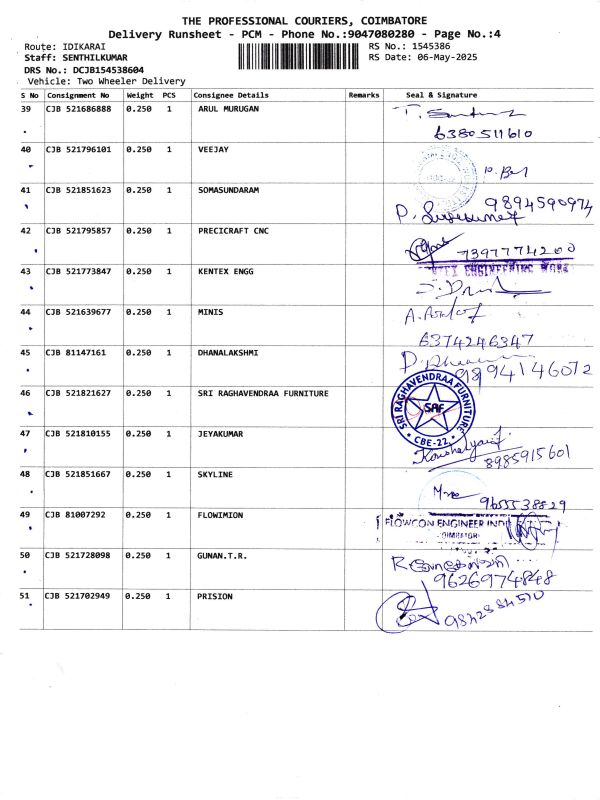 THE PROFESSIONAL COURIERS, COIMBATORE
Delivery Runsheet - PCM - Phone No.:9047080280 - Page No.:4
Route: IDIKARAI RS No.: 1545386
Staff: SENTHILKUMAR RS Date: 06-May-2025
DRS No.: DCJB154538604
Vehicle: Two Wheeler Delivery
S No Consignment No Weight PCS Consignee Details Remarks Seal & Signature
39 CJB 521686888 0.250 1 ARUL MURUGAN
6380511610
40 CJB 521796101 0.250 1 VEEJAY
41 CJB 521851623 0.250 1 SOMASUNDARAM 9894590974
42 CJB 521795857 0.250 1 PRECICRAFT CNC
7397774200
43 CJB 521773847 0.250 1 KENTEX ENGG ENGINEERING WORK
44 CJB 521639677 0.250 1 MINIS
6374246347
45 CJB 81147161 0.250 1 DHANALAKSHMI
9894146072
46 CJB 521821627 0.250 1 SRI RAGHAVENDRA FURNITURE SRI RAGHAVENDRAA FURNITURE SRF CBE-22
47 CJB 521810155 0.250 1 JEYAKUMAR
8985915601
48 CJB 521851667 0.250 1 SKYLINE
9655538829
49 CJB 81007292 0.250 1 FLOWIMION FLOWCON ENGINEER
50 CJB 521728098 0.250 1 GUNAN.T.R.
9626974848
51 CJB 521702949 0.250 1 PRISION